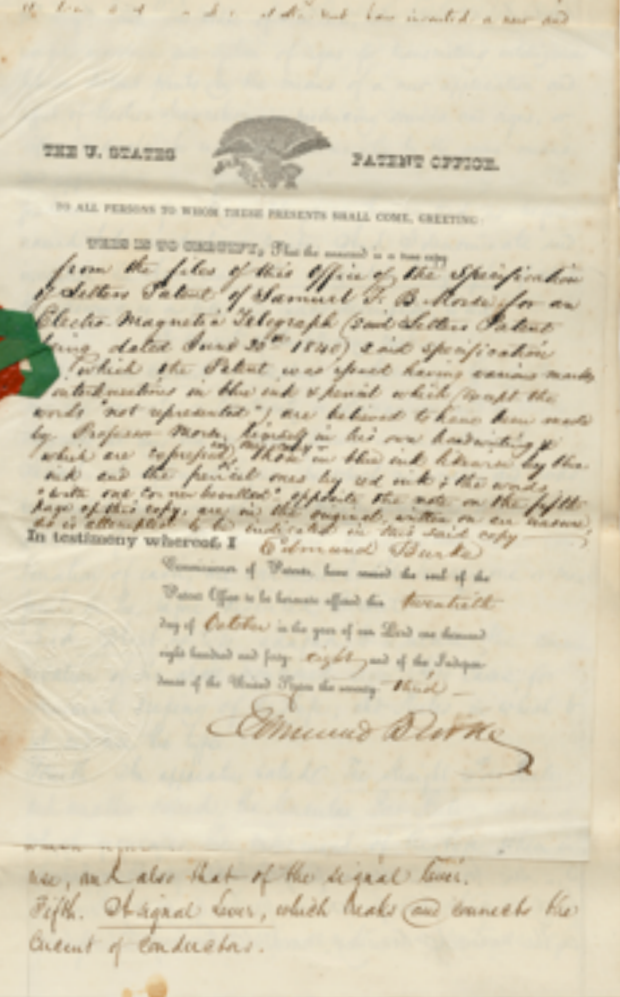 have invented a new and
THE U. STATES PATENT OFFICE.
TO ALL PERSONS TO WHOM THESE PRESENTS SHALL COME, GREETING:
THIS IS TO CERTIFY, That the annexed is a true copy
from the files of this Office of the Specification
of Letters Patent of Samuel F. B. Morse for an
Electro-Magnetic Telegraph (said Letters Patent
being dated June 20th 1840) said specification
which the Patent was having various marks
interlineations in blue ink & pencil which (except the
words "not represented") are believed to have been made
by Professor Morse himself in his own handwriting &
which are copied those in blue ink likewise by blue
ink and the pencil ones by red ink; the words
"with one" opposite the note on the fifth
page of this copy, are in the original, written on an erasure
as is attempted to be indicated in this said copy
In testimony whereof, I Edmund Burke
Commissioner of Patents, have caused the seal of the
Patent Office to be hereunto affixed this twentieth
day of October in the year of our Lord one thousand
eight hundred and forty eight and of the Indepen-
dence of the United States the seventy third
Edmund Burke
use, and also that of the signal lever.
Fifth. A signal lever, which breaks and connects the
circuit of conductors.